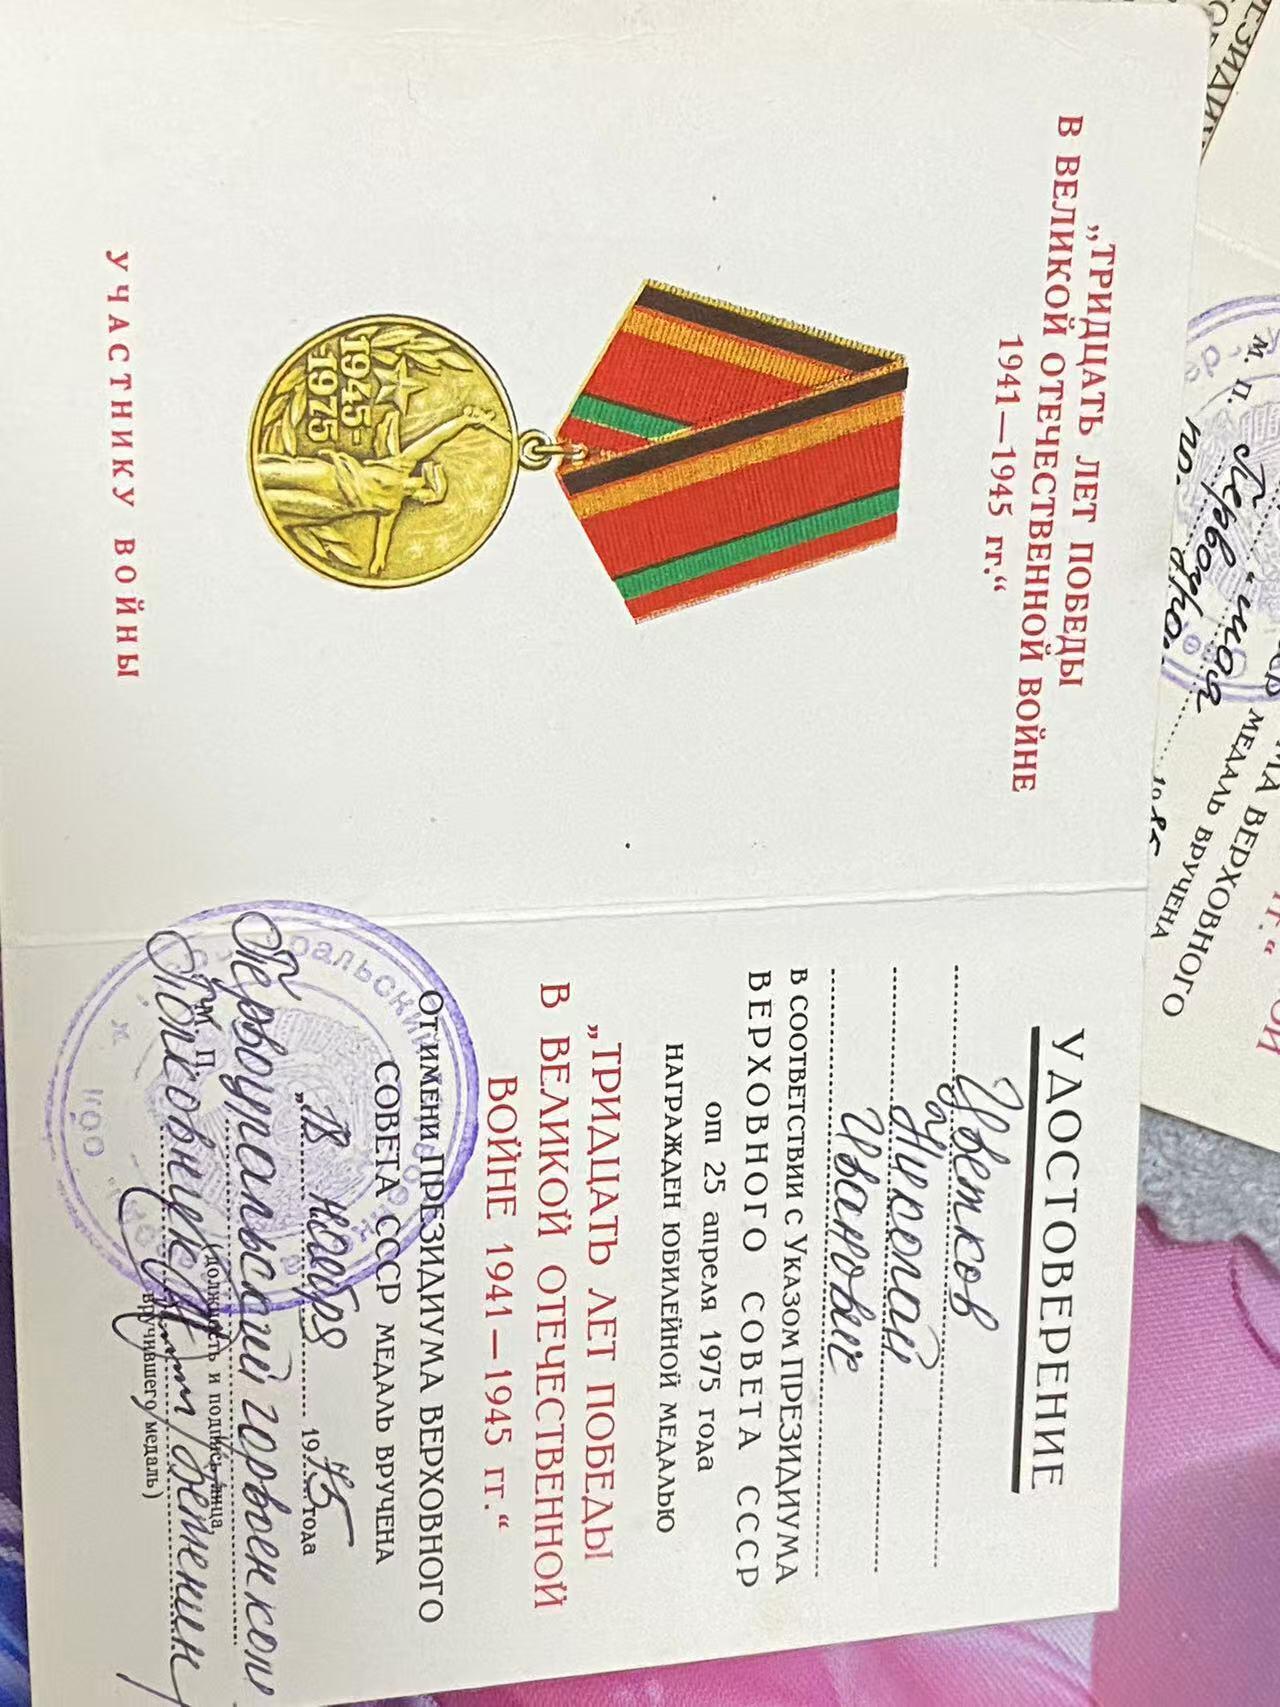 „ТРИДЦАТЬ ЛЕТ ПОБЕДЫ
В ВЕЛИКОЙ ОТЕЧЕСТВЕННОЙ ВОЙНЕ
1941—1945 гг.“
1945-
1975
УЧАСТНИКУ ВОЙНЫ
УДОСТОВЕРЕНИЕ
Цветков
Николай
Иванович
В СООТВЕТСТВИИ С УКАЗОМ ПРЕЗИДИУМА
ВЕРХОВНОГО СОВЕТА СССР
от 25 апреля 1975 года
НАГРАЖДЕН ЮБИЛЕЙНОЙ МЕДАЛЬЮ
„ТРИДЦАТЬ ЛЕТ ПОБЕДЫ
В ВЕЛИКОЙ ОТЕЧЕСТВЕННОЙ
ВОЙНЕ 1941—1945 гг.“
От ИМЕНИ ПРЕЗИДИУМА ВЕРХОВНОГО
СОВЕТА СССР МЕДАЛЬ ВРУЧЕНА
ноября 1975 года
М. П. Первоуральский горвоенком
(должность и подпись лица,
Полковник
вручившего медаль)
м. п.
ВЕРХОВНОГО
МЕДАЛЬ ВРУЧЕНА